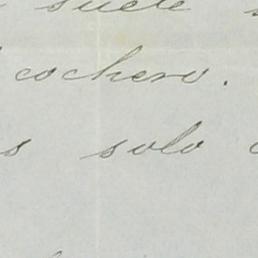 suele
cochero.
s solo